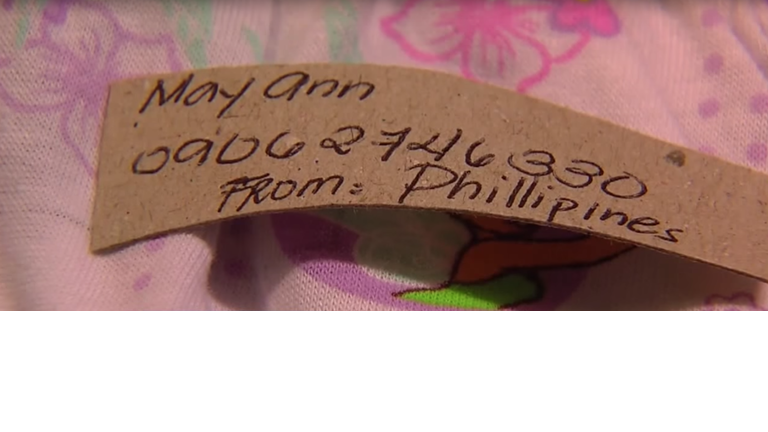 May Ann
09062746330
FROM: Phillipines